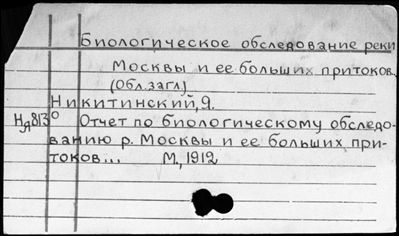 Биологическое обследование реки
Москвы и ее больших притоков.
(Обл.загл)
Никитинский, Я.
Отчет по биологическому обследо-
ванию р. Москвы и ее больших при-
токов... М., 1912